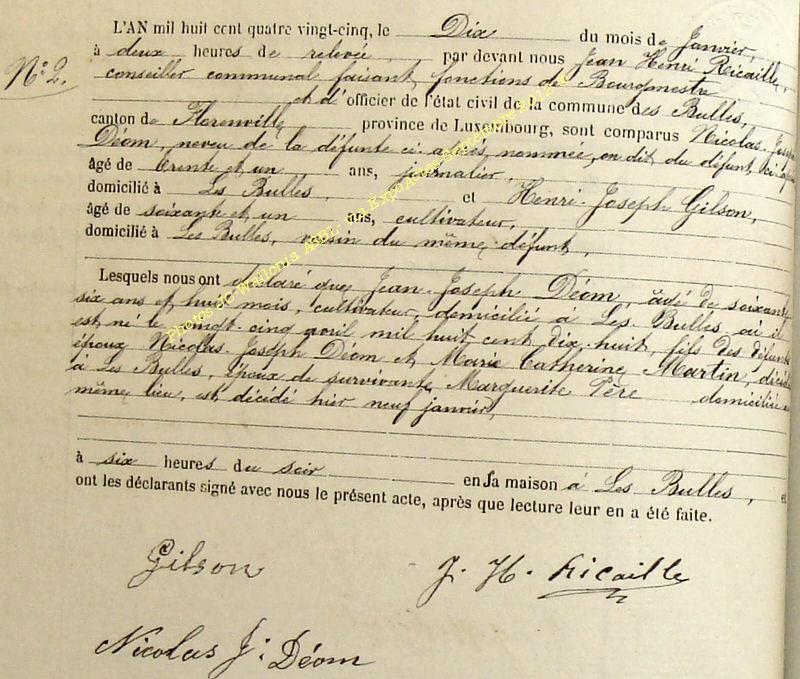 L'AN mil huit cent quatre vingt-cinq, le Dix du mois de Janvier,
N° 2. à deux heures de relevée par devant nous Jean Henri Ricaille,
conseiller communal faisant fonctions de Bourgmestre
et d'officier de l'état civil de la commune des Bulles,
canton de Florenville province de Luxembourg, sont comparus Nicolas Joseph
Déom, neveu de la défunte ci après nommée, on dit du défunt, ci
âgé de trente et un ans, journalier,
domicilié à Les Bulles, et Henri-Joseph Gilson,
âgé de soixante et un ans, cultivateur,
domicilié à Les Bulles, voisin du même défunt,
Lesquels nous ont déclaré que Jean-Joseph Déom, âgé de soixante
six ans et huit mois, cultivateur, domicilié à Les Bulles où il
est né le vingt-cinq avril mil huit cent dix-huit, fils des défunts
époux Nicolas-Joseph Déom et Marie Catherine Martin,
à Les Bulles, époux de survivante Marguerite Père domiciliée
même lieu, est décédé hier neuf janvier,
à six heures du soir en sa maison à Les Bulles, et
ont les déclarants signé avec nous le présent acte, après que lecture leur en a été faite.
Gilson J. H. Ricaille
Nicolas J: Déom
Photos JC Wallonia ASBL via ExpoActes